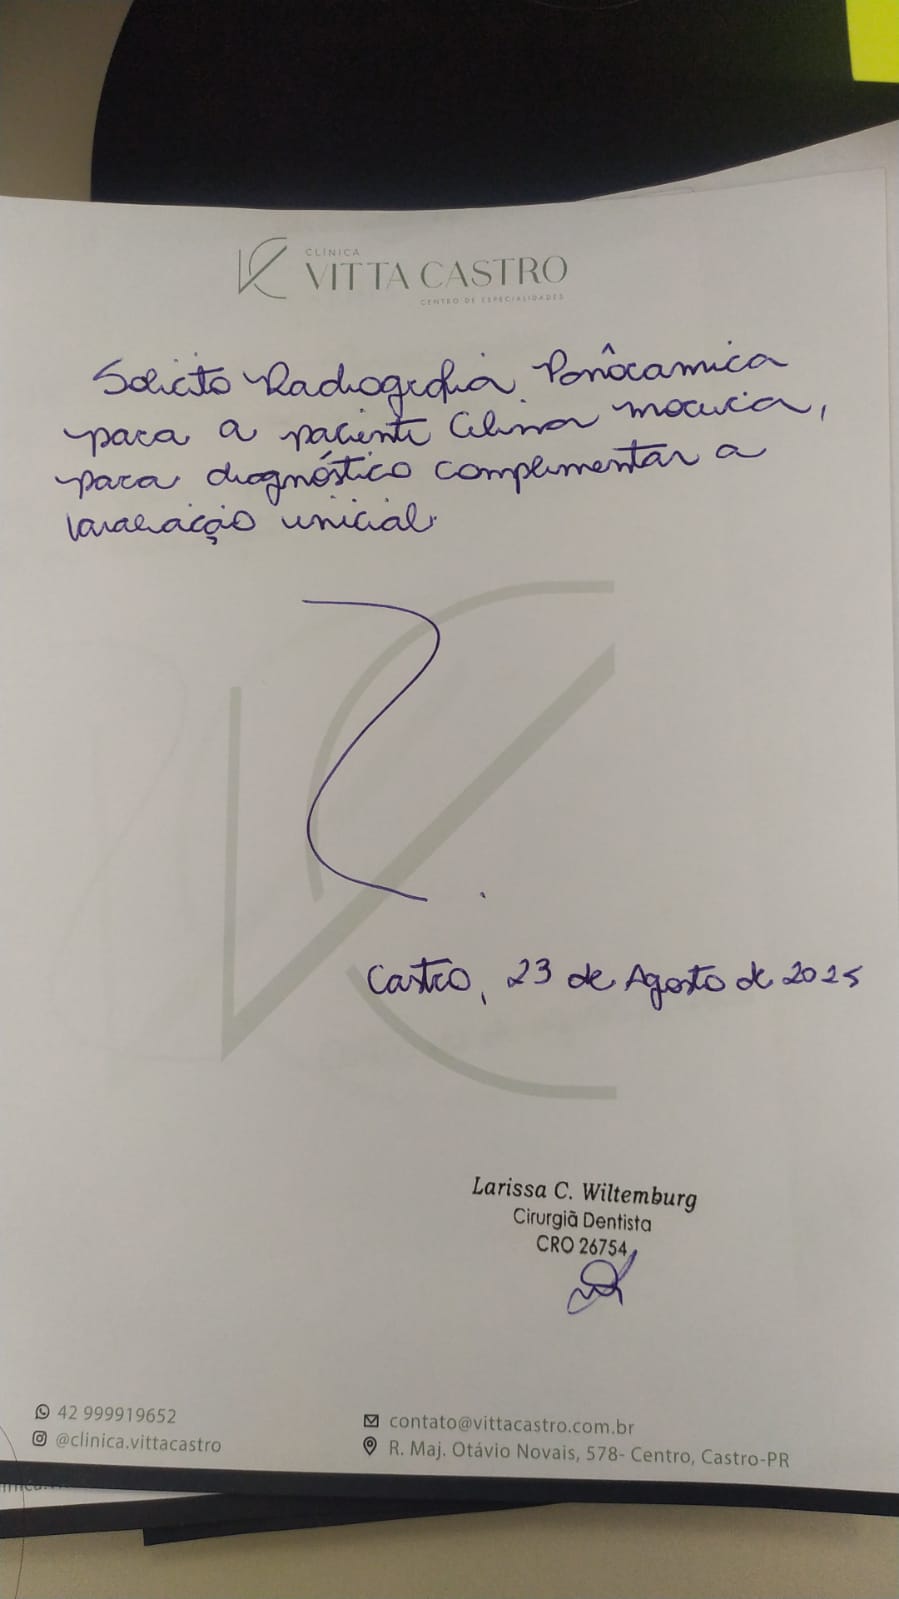 CLÍNICA
VITTA CASTRO
CENTRO DE ESPECIALIDADES
Solicito Radiografia Panorâmica
para a paciente Celina
para diagnóstico complementar a
avaliação inicial.
Castro, 23 de Agosto de 2025
Larissa C. Wiltemburg
Cirurgiã Dentista
CRO 26754
42 999919652
@clinica.vittacastro
contato@vittacastro.com.br
R. Maj. Otávio Novais, 578- Centro, Castro-PR